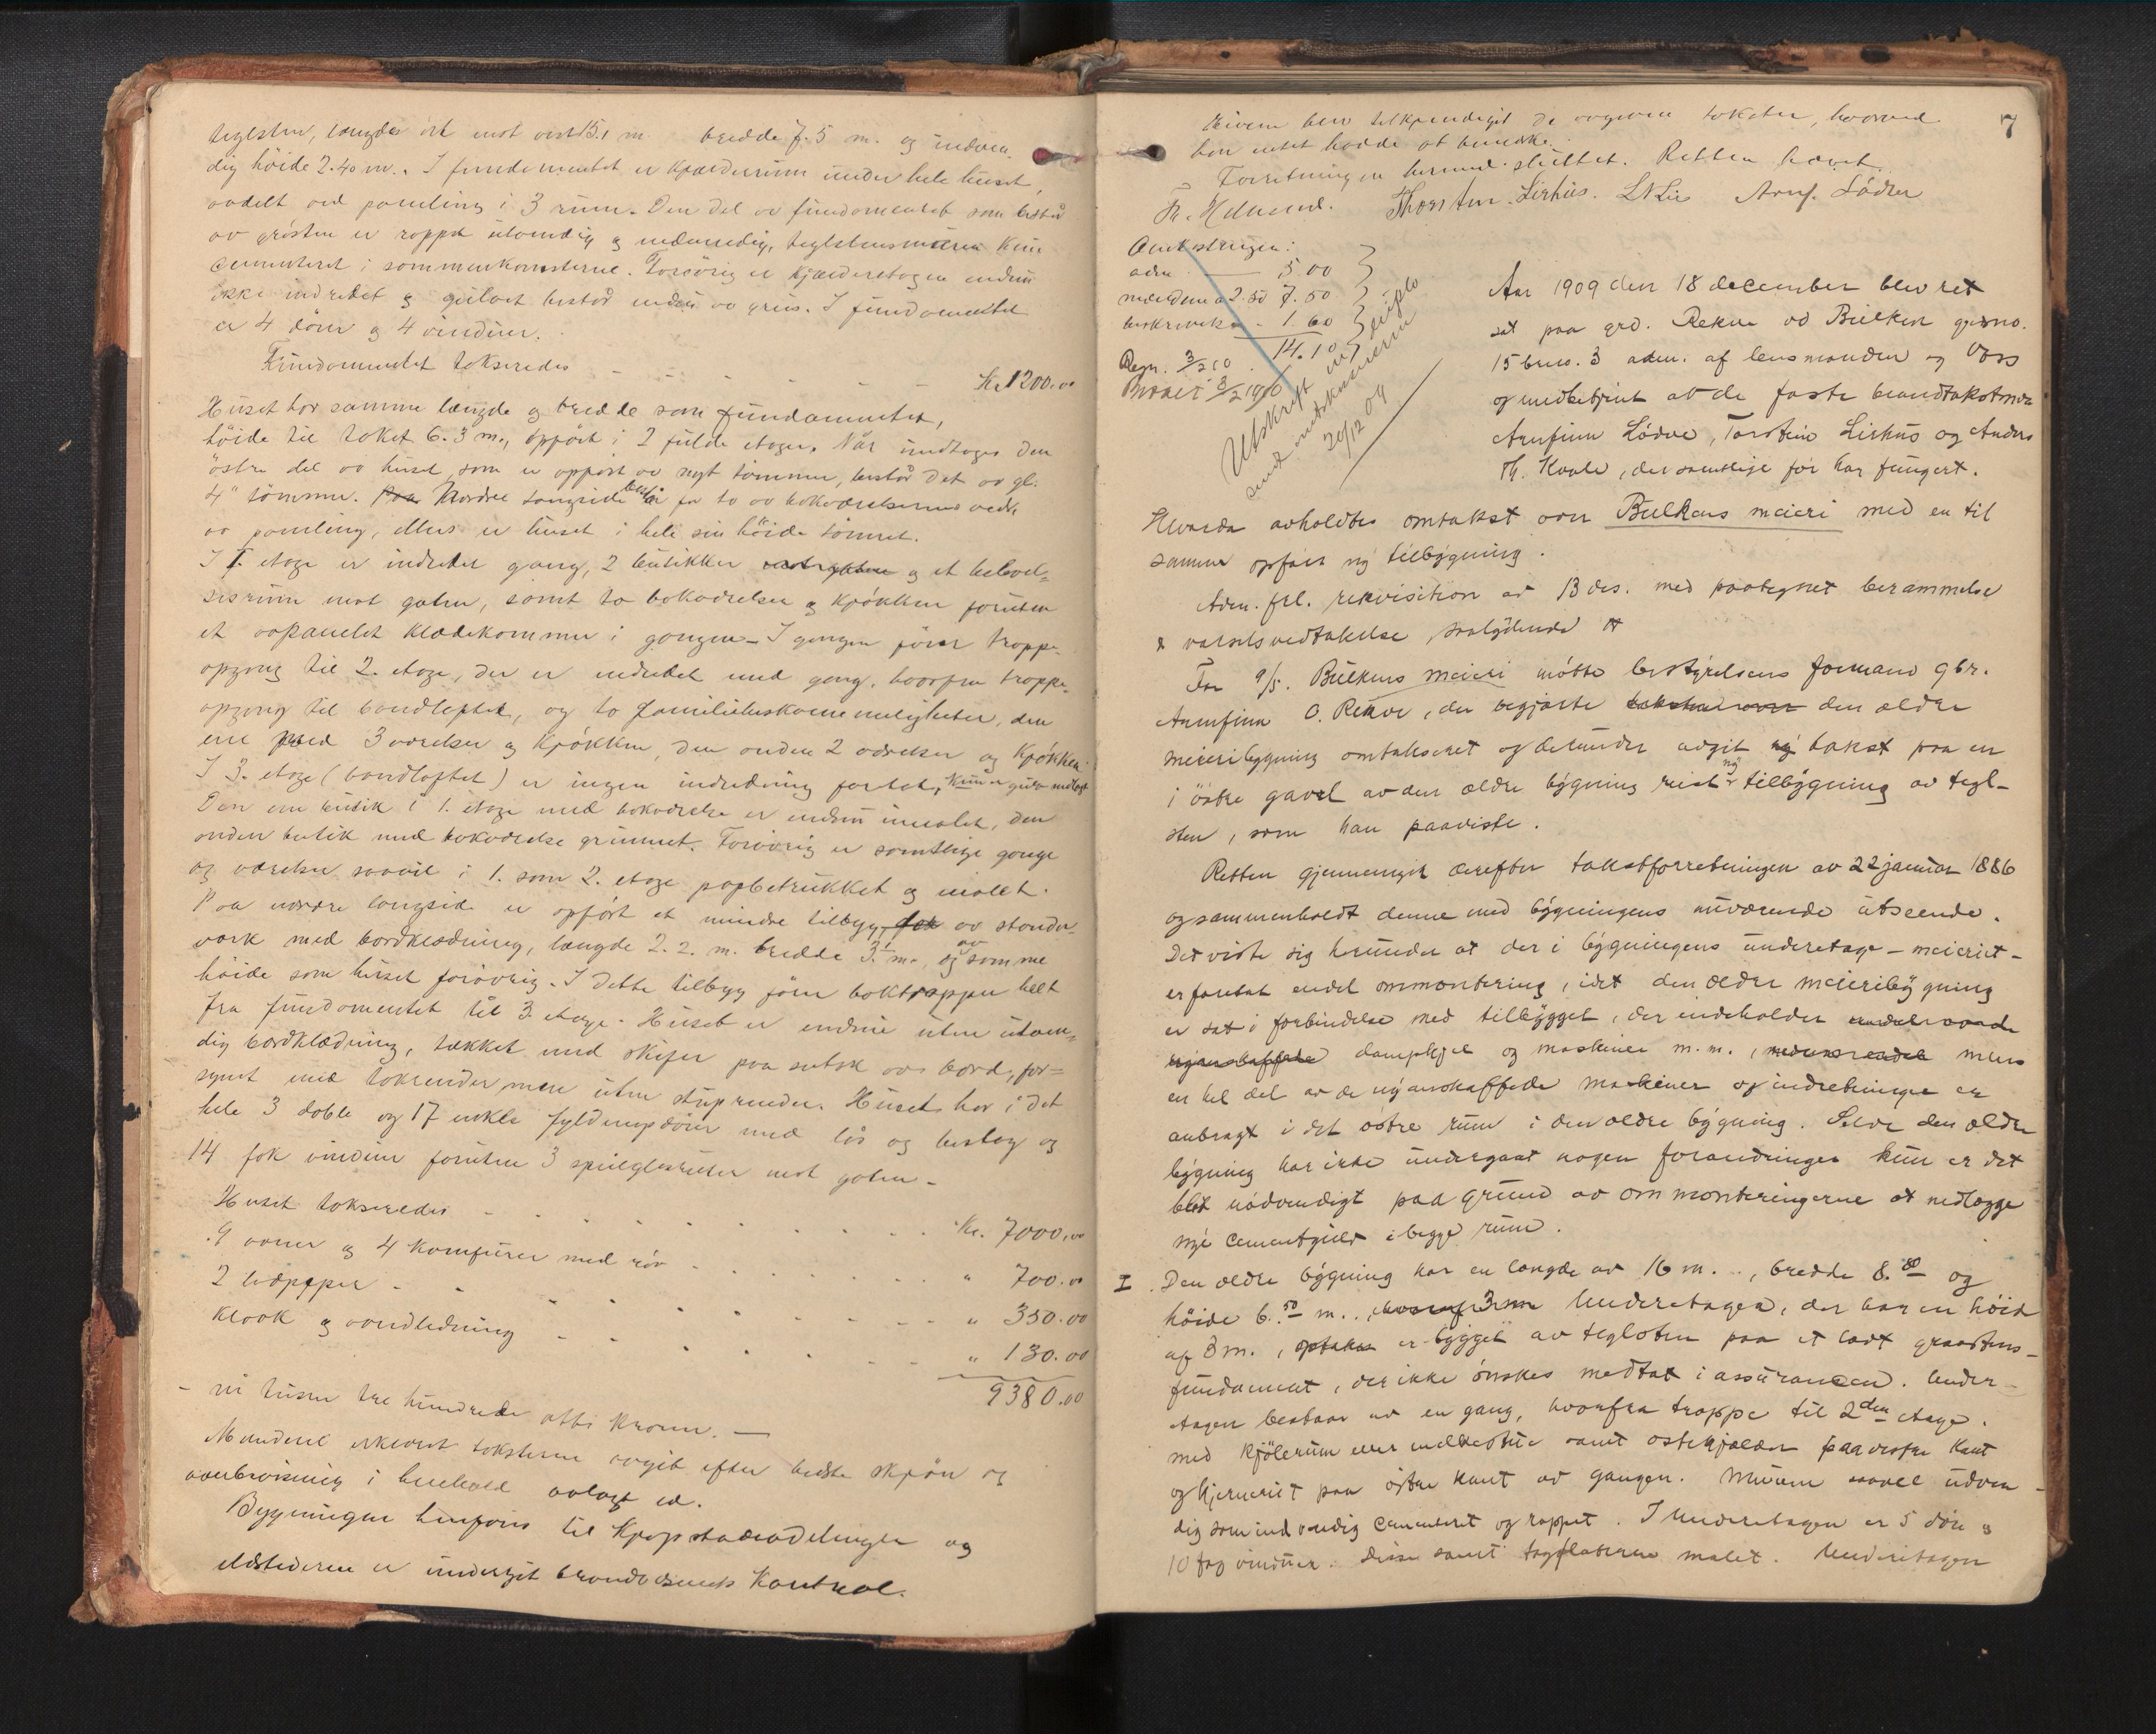 teglsten, længde öst mot vest 15.1 m. bredde 7.5 m. og indven-
dig höide 2.40 m. I fundamentet er kjælderrum under hele huset,
avdelt ved panling i 3 rum. Den del av fundamentet som består
av gråsten er rappet utvendig og indvendig, teglstensmuren kun
cementeret i sammenkomsterne. Forövrig er kjælderetagen endnu
ikke indredet og gulvet består endnu av grus. I fundamentet
er 4 dörer og 4 vinduer.
Fundamentet takseredes Kr. 1200.00
Huset har samme længde og bredde som fundamentet,
höide til taket 6.3 m., opfört i 2 fulde etager. Når undtages den
östre del av huset, som er opfört av nyt tömmer, består det av gl.
4" tömmer. Paa Nordre langside består for to av bakværelsernes vedk.
av panling, ellers er huset i hele sin höide tömret.
I 1. etage er indredet gang, 2 butikker og et
sesrum mot gaten, samt to bakværelser og kjökken foruten
et avpanelet klædekammer i gangen. I gangen förer trappe-
opgang til 2. etage, der er indredet med gang, hvorfra trappe-
opgang til bandloftet, og to familiebekvemmeligheter, den
ene med 3 værelser og kjökken, den anden 2 værelser og kjökken.
I 3. etage (bandloftet) er ingen indredning foretat, kun er gulv nedlagt
Den ene butik i 1. etage med bakværelse er endnu umalet, den
anden butik med bakværelse grunnet. Forövrig er samtlige gange
og værelser saavel i 1. som 2. etage papbetrukket og malet.
Paa nordre langside er opfört et mindre tilbygg av stender-
værk med bordklædning, længde 2.2. m. bredde 3.1 m., og av samme
höide som huset forövrig. I dette tilbyg förer baktrappen helt
fra fundamentet til 3. etage. Huset er endnu uten utven-
dig bordklædning, tækket med skifer paa sutak av bord, for-
synt med takrender men uten stuprender. Huset har i det
hele 3 doble og 17 enkle fyldingsdörer med lås og beslag og
14 fak vinduer foruten 3 speilglasruter mot gaten.
Huset takseredes Kr. 7000.00
9 ovner og 4 komfurer med rör " 700.00
2 " 350.00
Kloak og vandledning " 130.00
9380.00
- ni tusen tre hundrede otti kroner. -
Mændene erklæret taksterne avgit efter bedste skjön og
overbevisning i henhold avlagt ed.
Bygningen henföres til Kjöpstadavdelingen og
ildstederne er undergit brandvæsenets kontrol.
7
Eieren blev tilkjendegivet de avgivne takster, hvorved
han intet hadde at bemerke.
Forretningen hermed sluttet. Retten hævet.
Thorstein Lirhus. L N Lie Arnf. Lödve
adm. 5.00
mændene a 2.50 7.50
1.60
14.10
Regn. 3/2 10
Betalt 3/2 1910
Utskrift in duplo
20/12 09
Aar 1909 den 18 december blev ret
sat paa grd. Rekve ved Bulken gaardsno.
15 bruno. 3 adm. af lensmanden og Voss
og medbetjent av de faste brandtakstmæn
Arnfinn Lödve, Torstein Lirhus og Anders
Th. Kvale, der samtlige för har fungert.
Hvorda avholdtes omtakst over Bulkens meieri med en til
samme opfört ny tilbygning.
Adm. frl. rekvisition av 13 des. med paategnet berammelse
& varselsvedtakelse, saalydende
For Bulkens meieri mötte bestyrelsens formand gbr.
Arnfinn O. Rekve, der begjærte den ældre
meieribygning omtakseret og derunder avgit takst paa en
i östre gavel av den ældre bygning reist ny tilbygning av tegl-
sten, som han paaviste.
Retten gjennemgik derefter takstforretningen av 22 januar 1886
og sammenholdt denne med bygningens nuværende utseende.
Det viste sig herunder at der i bygningens underetage - meieriet -
er foretat endel ommontering, idet den ældre meieribygning
er sat i forbindelse med tilbygget, der indeholder
dampkjel og maskiner m.m., mens
en hel del av de nyanskaffede maskiner og indretninger er
anbragt i det östre rum i den ældre bygning. Selve den ældre
bygning har ikke undergaat nogen forandringer kun er det
blit nödvendigt paa grund av ommonteringerne at nedlægge
nye cementgulv i begge rum.
I. Den ældre bygning har en længde av 16 m., bredde 8.80 og
höide 6.50 m. Underetagen, der har en höide
af 3 m., er bygget av teglsten paa et lavt graastens-
fundament, der ikke önskes medtat i assurancen. Under-
etagen bestaar av en gang, hvorfra trappe til 2den etage.
med kjölerum eller melkestue samt ostekjælder paa vestre kant
og kjerneriet paa östre kant av gangen. Murene saavel udven-
dig som indvendig cementeret og rappet. I Underetagen er 5 döre og
10 fag vinduer. Disse samt tagflaterne malet. Underetagen